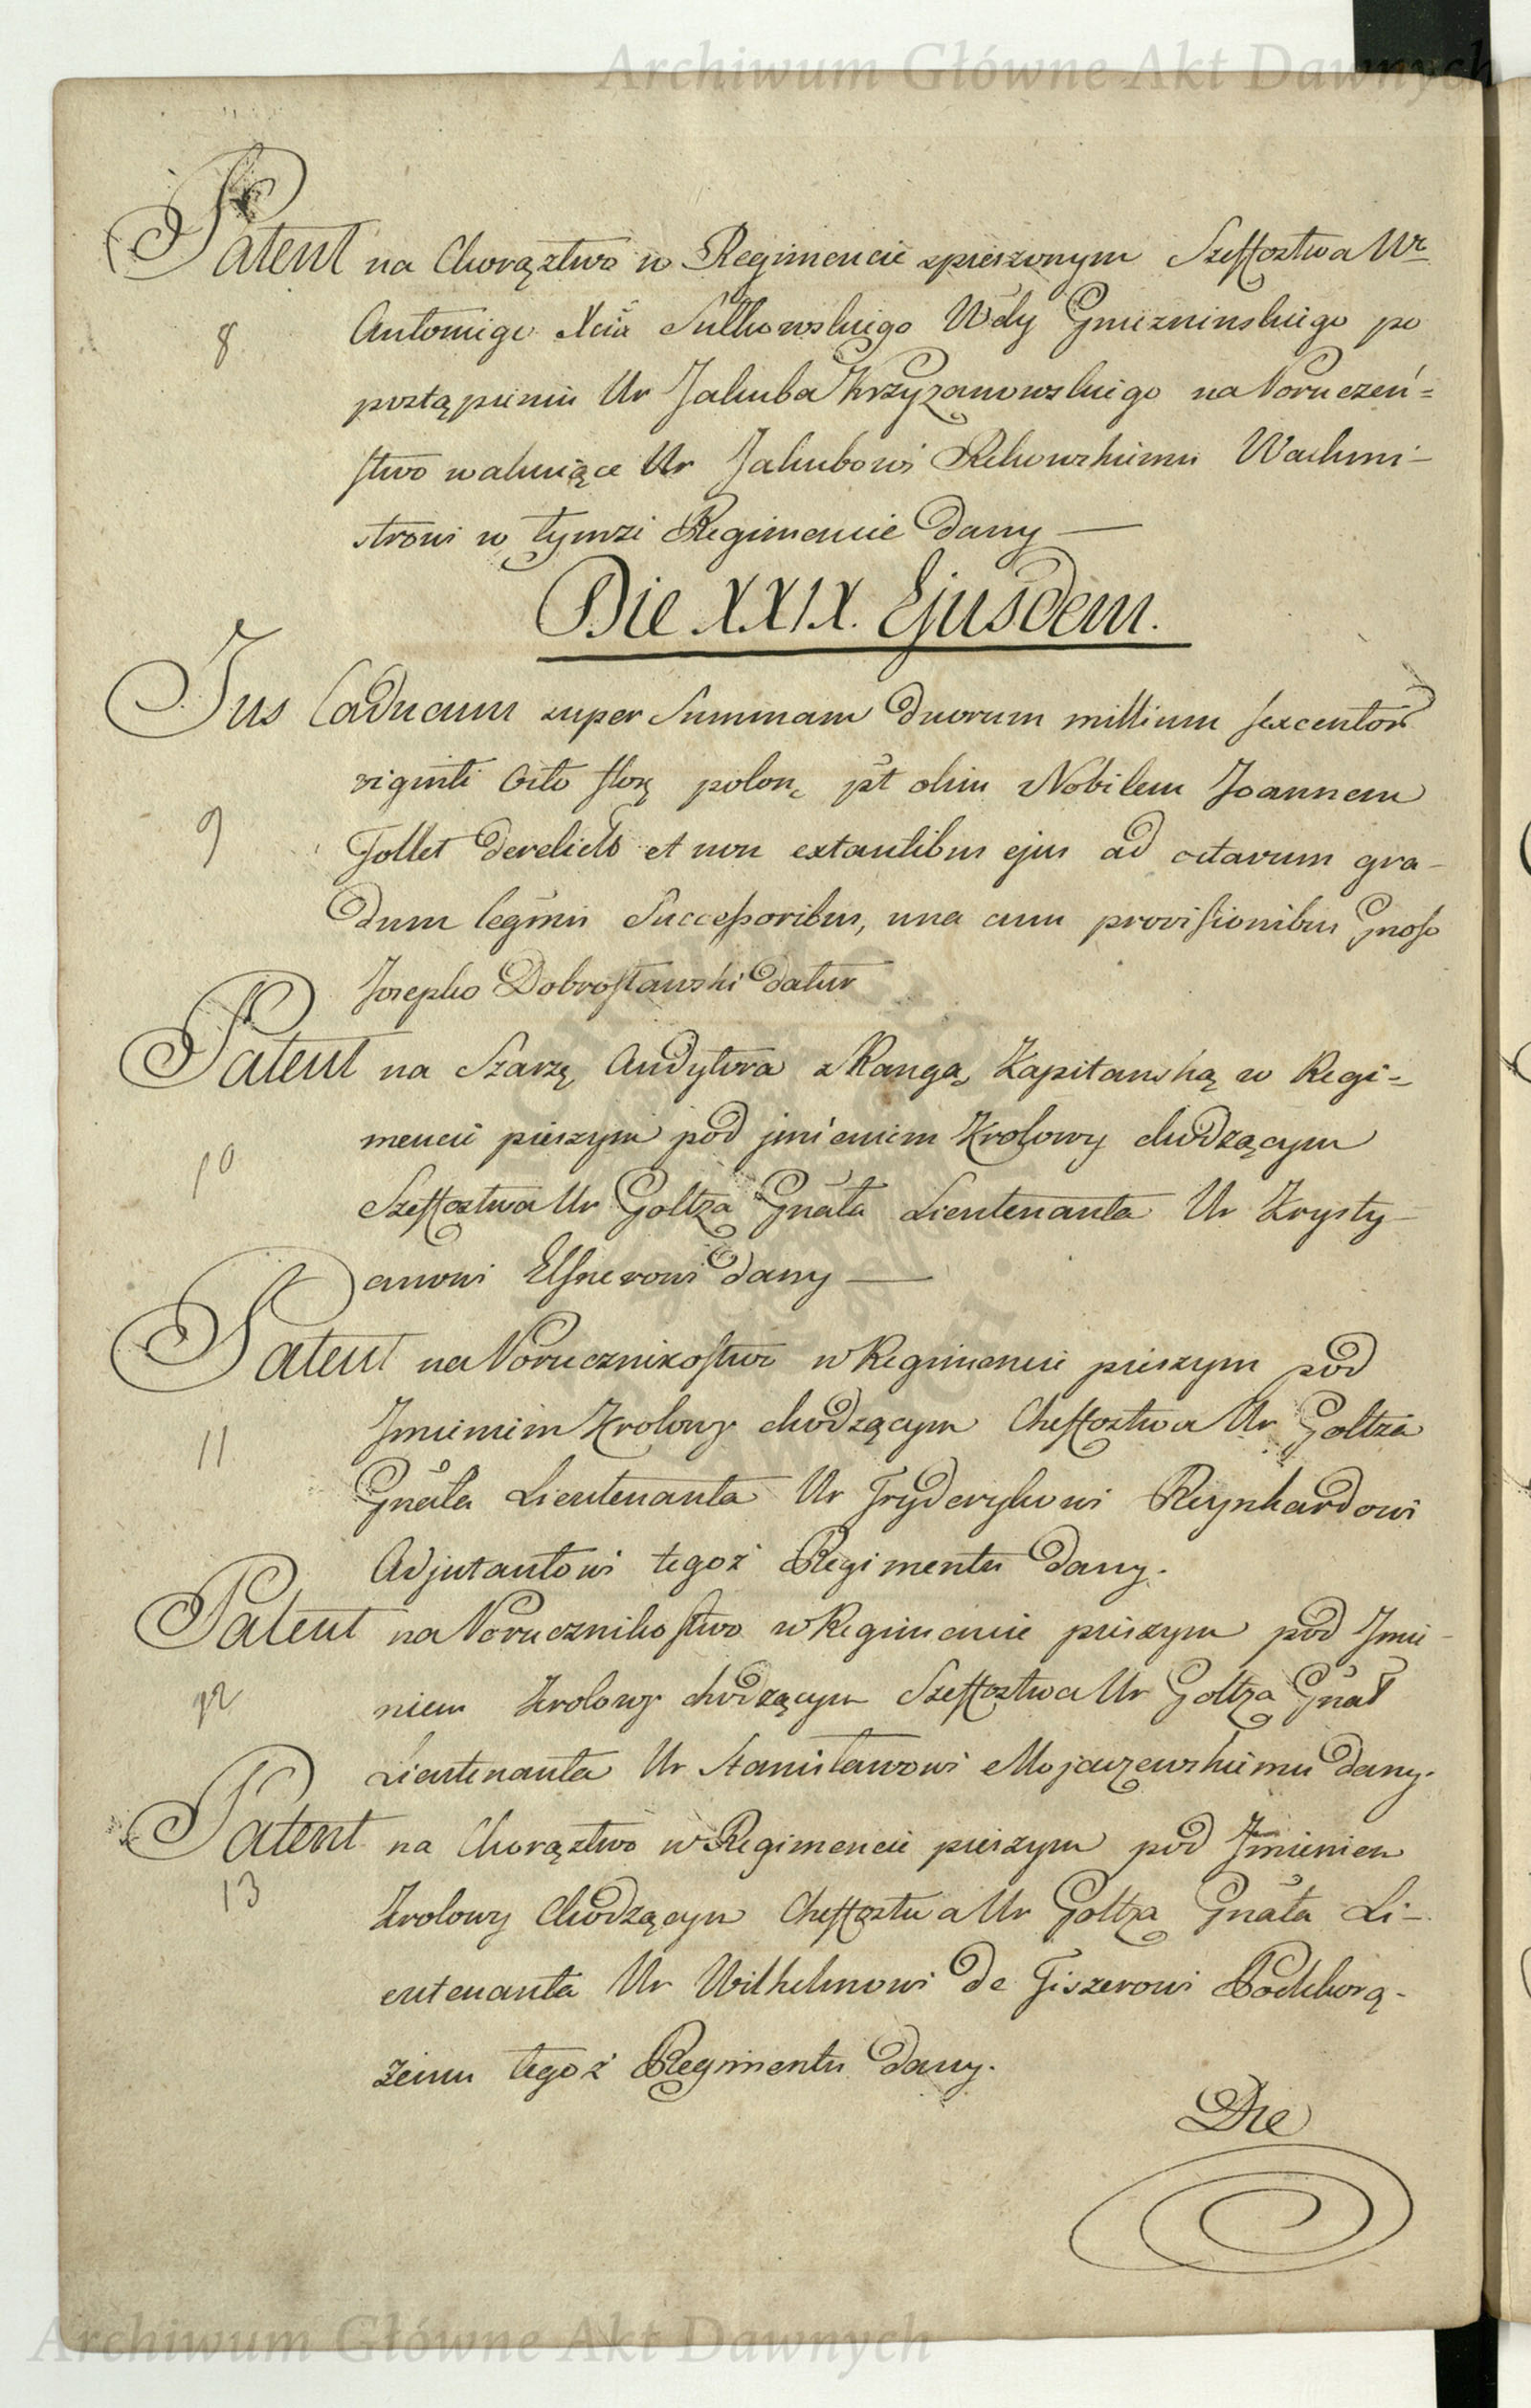 Archiwum Główne Akt Dawnych
Patent na Chorąztwo w Regimencie spieszonym Szeffostwa Ur
8 Antoniego Xcia Sułkowskiego Wdy Gniezninskiego po
postąpieniu Ur Jakuba Krzyzanowskiego na Poruczeń=
stwo wakuiące Ur Jakubowi Rekowskiemu Wachmi-
strowi w tymze Regimencie dany —
Die XXIX. Ejusdem.
Jus Caducum super Summam duorum millium sexcentor
viginti octo flor polon, pt olim Nobilem Joannem
9 Follet derelicto et non extantibus ejus ad octavum gra-
dum legmis Successoribus, una cum provisionibus Gnoso
Josepho Dobrosławski datur
Patent na Szarzę Audytora z Rangą Kapitanską w Regi=
mencie pieszym pod jmieniem Krolowy chodzącym
10 Szeffostwa Ur Goltza Gnała Lieutenanta Ur Krysty-
anowi Elsnerowi dany —
Patent na Porucznikostwo w Regimencie pieszym pod
Jmieniem Krolowy chodzącym Cheffostwa Ur Goltza
11 Gnała Lieutenanta Ur Fryderykowi Reynhardowi
Adjutantowi tegoż Regimentu dany.
Patent na Porucznikostwo w Regimencie pieszym pod Jmie-
12 niem Krolowy chodzącym Szeffostwa Ur Goltza Gnał
Lieutenanta Ur Stanisławowi Mojaczewskiemu dany.
Patent na Chorąztwo w Regimencie pieszym pod Jmieniem
13 Krolowy Chodzącym Cheffostwa Ur Goltza Gnała Li-
eutenanta Ur Wilhelmowi de Fiszerowi Podchorą-
żemu tegoż Regimentu dany.
Die
Archiwum Główne Akt Dawnych